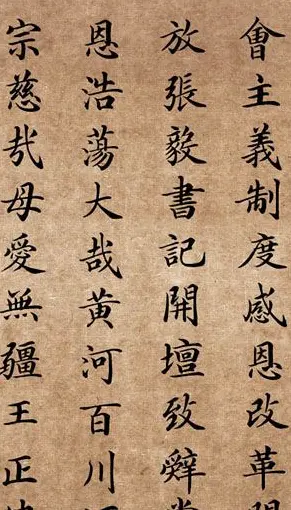 會主義制度感恩改革
放張毅書記開壇致辭
恩浩蕩大哉黄河百川
宗慈哉母愛無疆王正